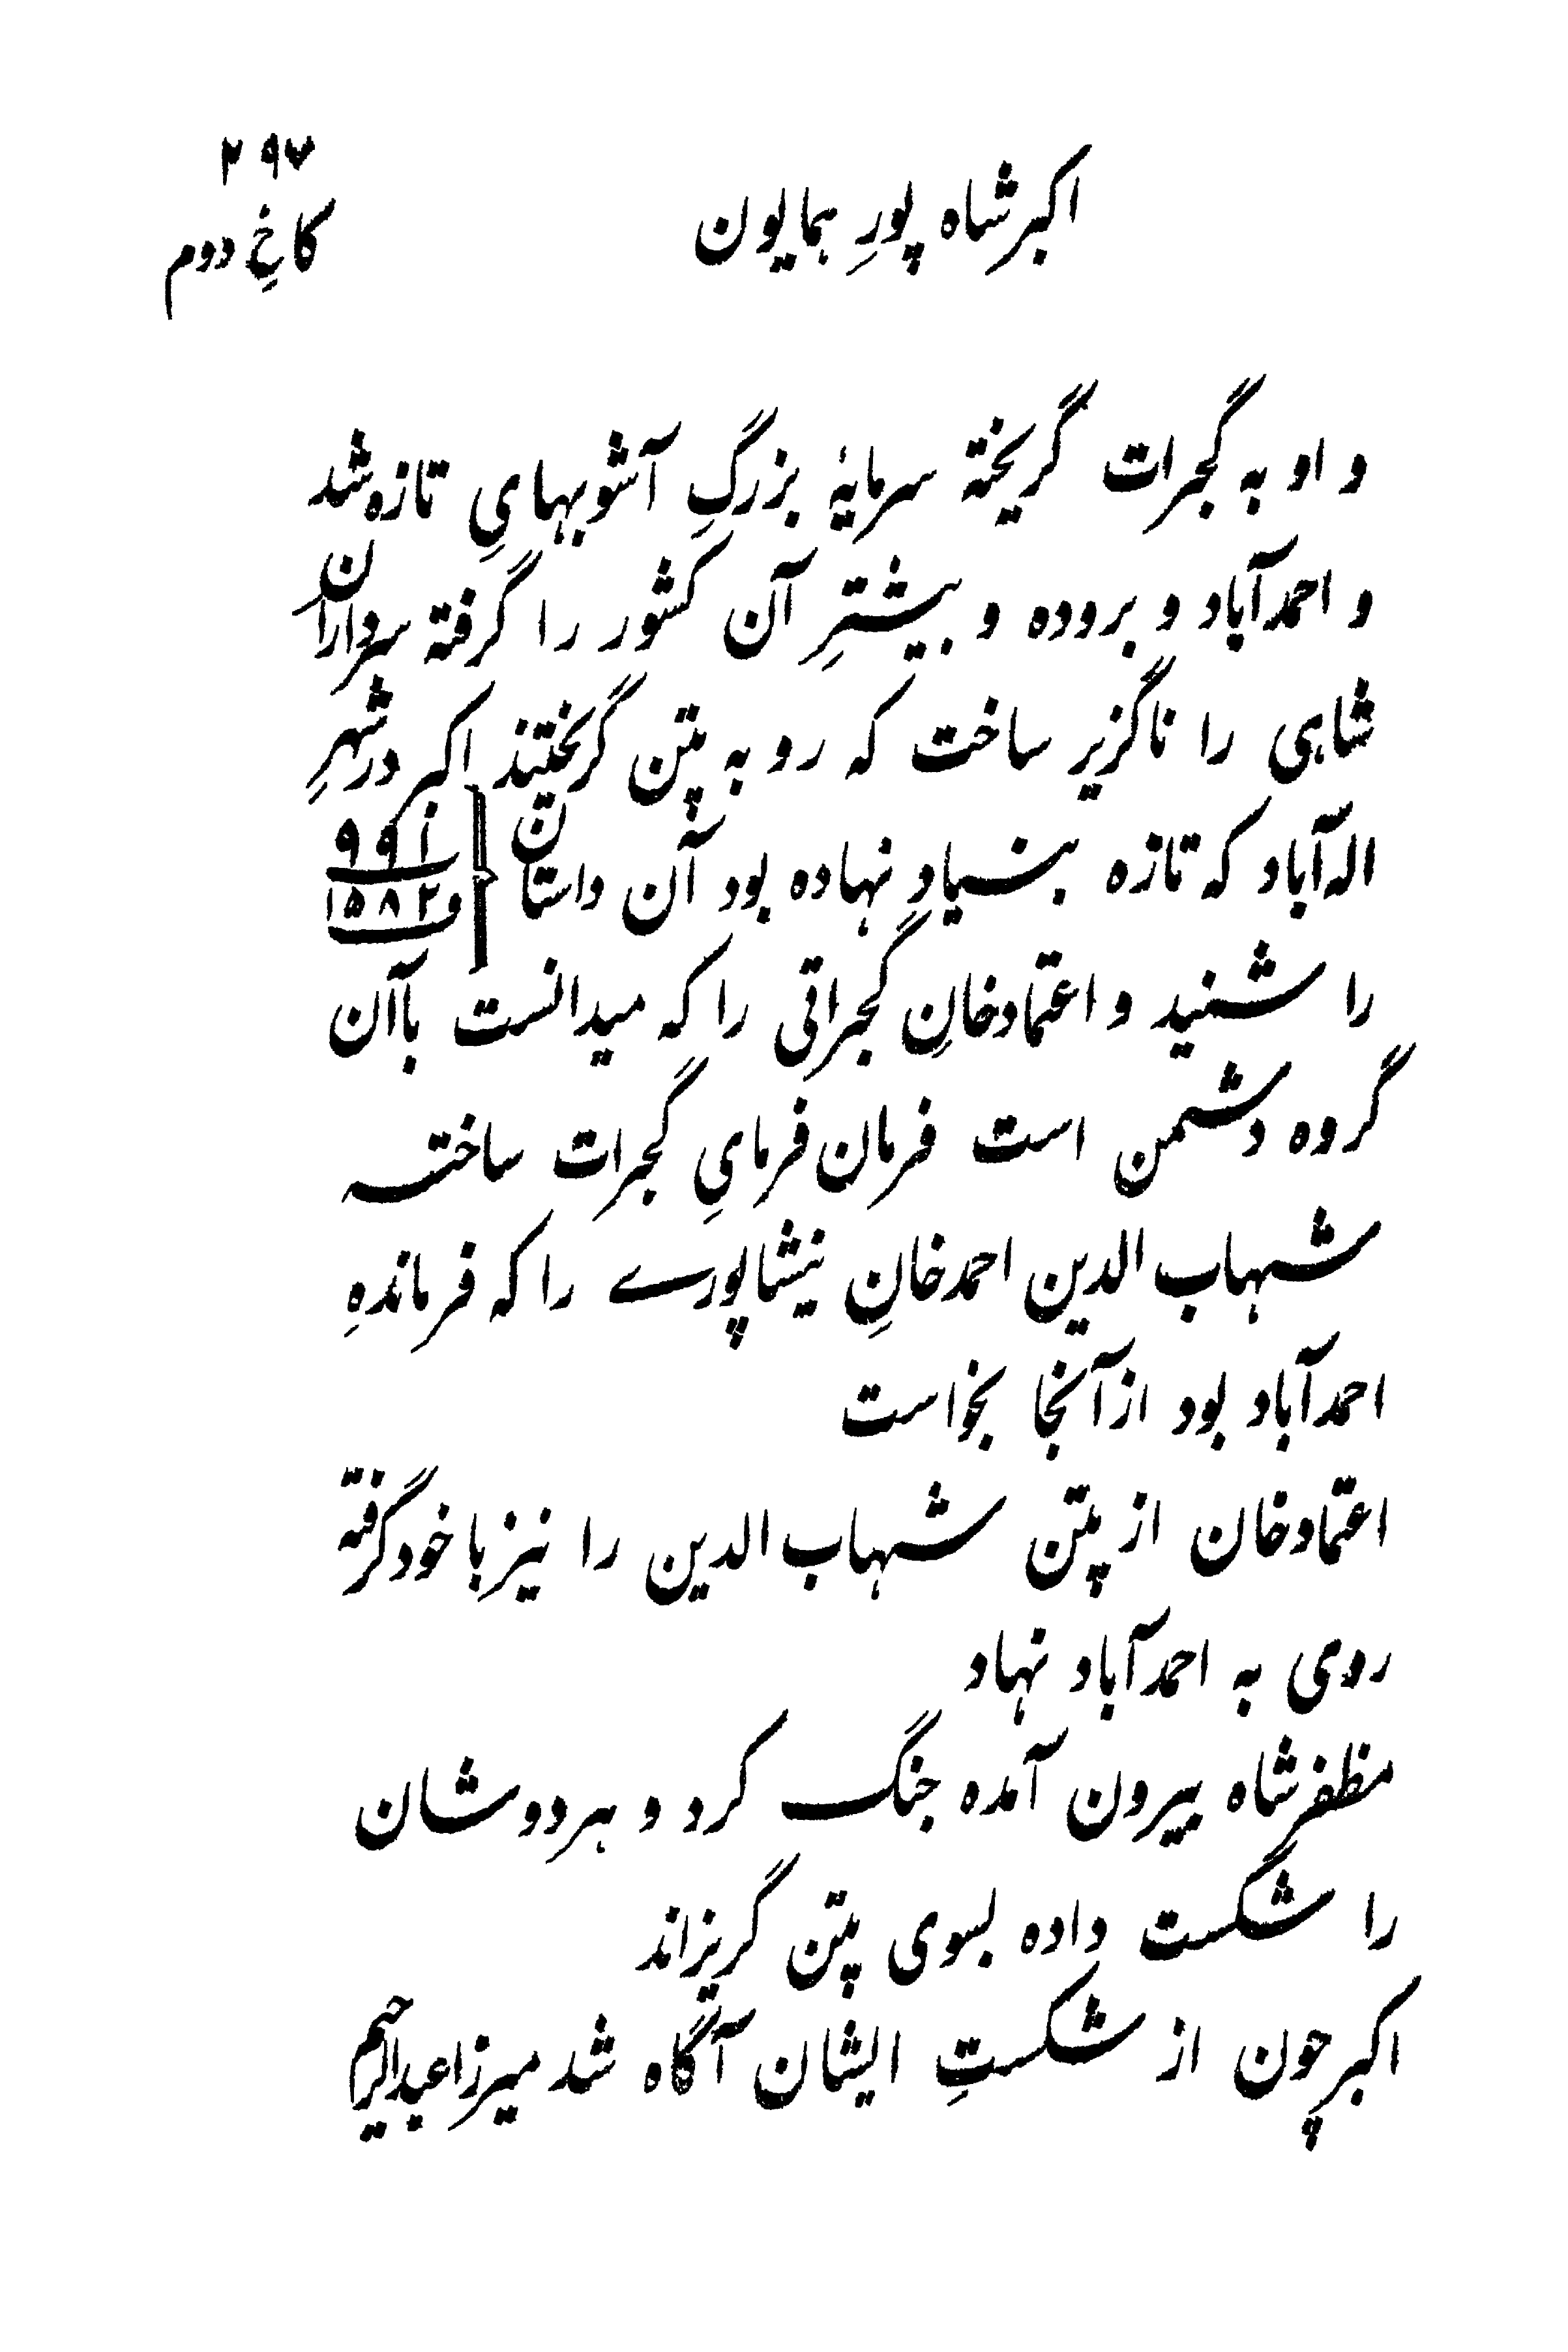 ۲۹۷
کاخِ دوم
اکبرشاه پورِ همایون
و او به گجرات گریخته سرمایهٔ بزرگِ آشوبهایِ تازه شد
و احمدآباد و بروده و بیشترِ آن کشور را گرفته سردارانِ
شاهی را ناگزیر ساخت که رو به پتن گریختند اکبر در شهرِ
اله آباد که تازه بنیاد نهاده بود آن داستان
۹۹۱
و ۱۵۸۲
را شنید و اعتمادخانِ گجراتی را که میدانست باآن
گروه دشمن است فرمان فرمایِ گجرات ساخته
شهاب الدین احمدخانِ نیشاپورے را که فرماندهِ
احمدآباد بود ازآنجا بخواست
اعتمادخان از پتن شهاب الدین را نیز باخود گرفته
روی به احمدآباد نهاد
مظفرشاه بیرون آمده جنگ کرد و هردوشان
را شکست داده بسوی پتن گریزاند
اکبر چون از شکستِ ایشان آگاه شد میرزا عبدالرحیم